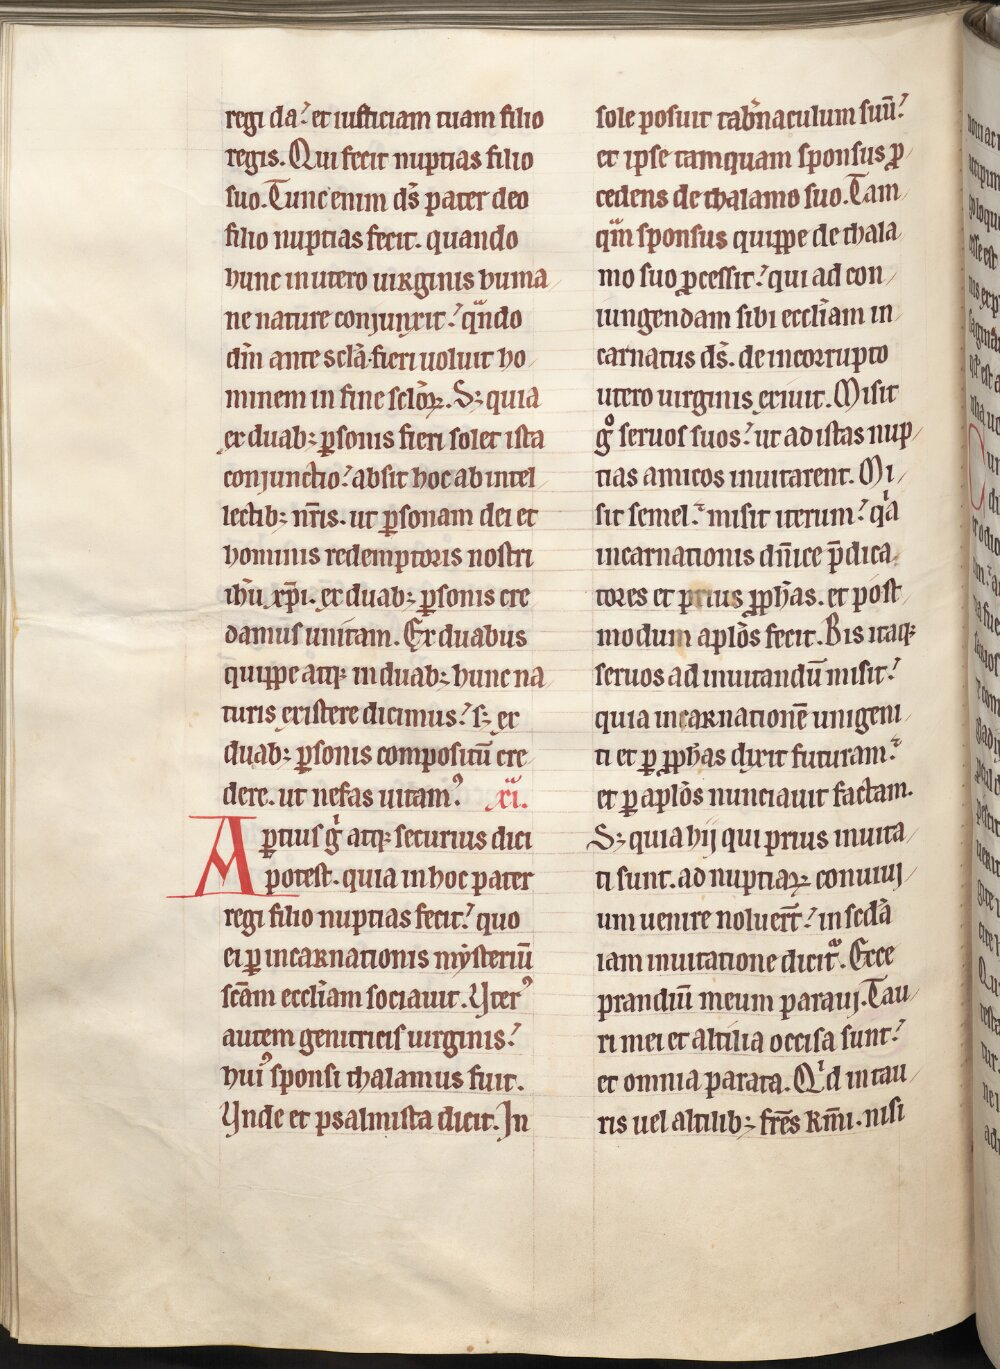 regi da. et iusticiam tuam filio
regis. Qui fecit nuptias filio
suo. Tunc enim ds̄ pater deo
filio nuptias fecit. quando
hunc in utero uirginis huma
ne nature conjunxit. qn̄do
dm̄ ante scl̄a fieri uoluit ho
minem in fine scl̄oꝝ. Sꝫ quia
ex duabꝫ ꝑsonis fieri solet ista
conjunctio. absit hoc ab intel
lectibꝫ nr̄is. ut ꝑsonam dei et
hominis redemptoris nostri
ihū xp̄i. ex duabꝫ ꝑsonis cre
damus unitam. Ex duabus
quippe atqꝫ in duabꝫ hunc na
turis existere dicimus. sꝫ ex
duabꝫ ꝑsonis compositū cre
dere. ut nefas uitamꝰ. xi.
Aptius gͥ atqꝫ securius dici
potest. quia in hoc pater
regi filio nuptias fecit. quo
ei ꝑ incarnationis mẏsteriū
scām eccl̄iam sociauit. Uterꝰ
autem genitricis uirginis.
huiꝰ sponsi thalamus fuit.
Unde et psalmista dicit. In
sole posuit tab̄naculum suū.
et ipse tamquam sponsus ꝓ
cedens de thalamo suo. Tam
qm̄ sponsus quippe de thala
mo suo ꝓcessit. qui ad con
iungendam sibi eccl̄iam in
carnatus ds̄. de incorrupto
utero uirginis exiuit. Misit
gͦ seruos suos. ut ad istas nup
tias amicos inuitarent. Mi
sit semel. misit iterum. qͥa
incarnationis dn̄ice p̄dica
tores et prius ꝓph̄as. et post
modum apl̄os fecit. Bis itaqꝫ
seruos ad inuitandū misit.
quia incarnationē unigeni
ti et ꝑ ꝓphas dixit futuram.
et ꝑ apl̄os nunciauit factam.
Sꝫ quia hij qui prius inuita
ti sunt. ad nuptiaꝝ conuiuj
um uenire noluer̄t. in scd̄a
iam inuitatione dicit᷑. Ecce
prandiū meum parauj. Tau
ri mei et altilia occisa sunt.
et omnia parata. Qͥd in tau
ris uel altilibꝫ fr̄es km̄i. nisi